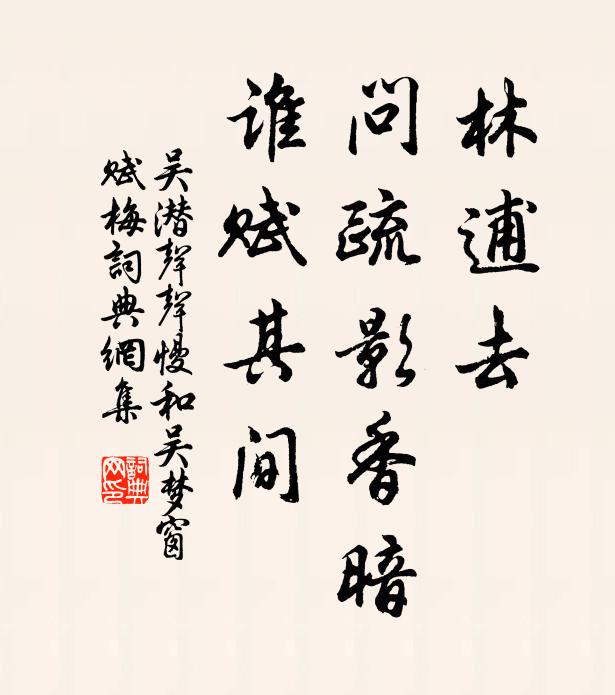 林逋去
问疏影香暗
谁赋其间
吴潜聲聲慢和吴梦窗
赋梅詞典網集
詞典
网印